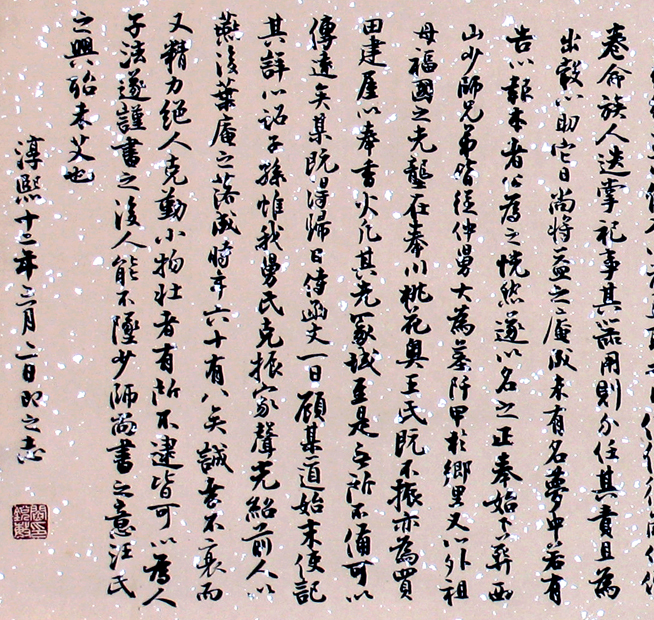 命族人迭掌祀事其器用則分任其責且為
出穀以助它日尚將益之庵成未有名夢中若有
告以報本者公為之恍然遂以名之正奉始卜葬西
山少師兄弟皆從仲舅大為墓阡甲於鄉里又以外祖
母福國之先壟在奉川桃花奧王氏既不振亦為買
田建屋以奉香火凡其先冢域至是無所不備可以
傳遠矣某既得歸日侍函丈一日顧某道始末使記
其詳以詔子孫惟我舅氏克振家聲光紹前人以
燕後葉庵之落成時年六十有八矣誠不衰而
又精力絕人克勤小物壯者有所不逮皆可以為人
子法遂謹書之後人能不墜少師尚書之意汪氏
之興殆未艾也
淳熙十二年三月二日